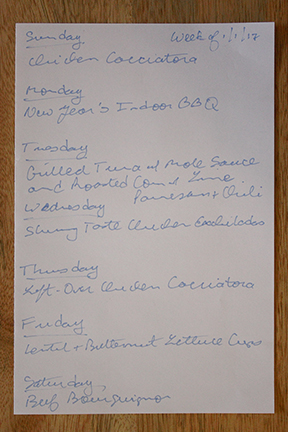 Sunday Week of 1/1/17
Chicken Cacciatora
Monday
New Year's Indoor BBQ
Tuesday
Grilled Tuna w/ Mole Sauce
and Roasted Corn w/ Lime
Parmesan + Chili
Wednesday
Skinny Taste Chicken Enchiladas
Thursday
Left-Over Chicken Cacciatora
Friday
Lentil + Butternut Lettuce Cups
Saturday
Beef Bourguignon